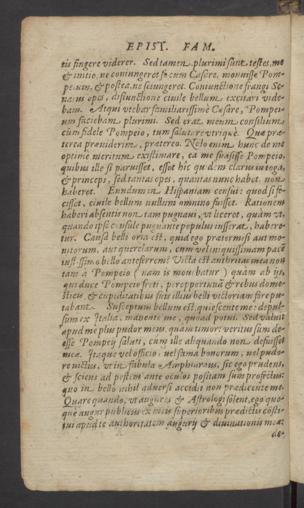 EPIST. FAM.
tis fingere viderer. Sed tamen plurimi sunt testes, me
& initio, ne coniungeret se cum Cæsare, monuisse Pom-
peium, & postea, ne seiungeret. Coniunctione frangi Se-
natus opes, disiunctione ciuile bellum excitari vide-
bam. Atqui vtebar familiarissimè Cæsare, Pompei-
um faciebam plurimi. Sed erat meum consilium
cùm fidele Pompeio, tum salutare vtrique. Quæ præ-
terea præuiderim, prætereo. Nolo enim hunc de me
optime meritum existimare, ea me suasisse Pompeio,
quibus ille si paruisset, esset hic quidem clarus in toga,
& princeps, sed tantas opes, quantas nunc habet, non
haberet. Eundum in Hispaniam censui: quod si fe-
cisset, ciuile bellum nullum omnino fuisset. Rationem
haberi absentis non tam pugnaui, vt liceret, quàm vt,
quando ipso consule pugnante populus iusserat, habere-
tur. Causa belli orta est, quid ego prætermisi aut mo-
nitorum, aut querelarum, cum vel iniquissimam pacem
iustissimo bello anteferrem? Victa est authoritas mea non
tam à Pompeio (nam is mouebatur) quàm ab ijs,
qui duce Pompeio freti, peropportunā & rebus dome-
sticis & cupiditatibus suis illius belli victoriam fore pu-
tabant. Susceptum bellum est quiescente me: depul-
sum ex Italia, manente me, quoad potui. Sed valuit
apud me plus pudor meus, quàm timor: veritus sum de-
esse Pompeij saluti, cum ille aliquando non defuisset
meæ. Itaque vel officio, vel fama bonorum, vel pudo-
re victus, vt in fabulis Amphiaraus, sic ego prudens,
& sciens ad pestem ante oculos positam sum profectus:
quo in bello nihil aduersi accidit non prædicente me.
Quare quando, vt augures & Astrologi solent, ego quo-
que augur publicus ex meis superioribus prædictis consti-
tui apud te authoritatem augurij & diuinationis meæ: